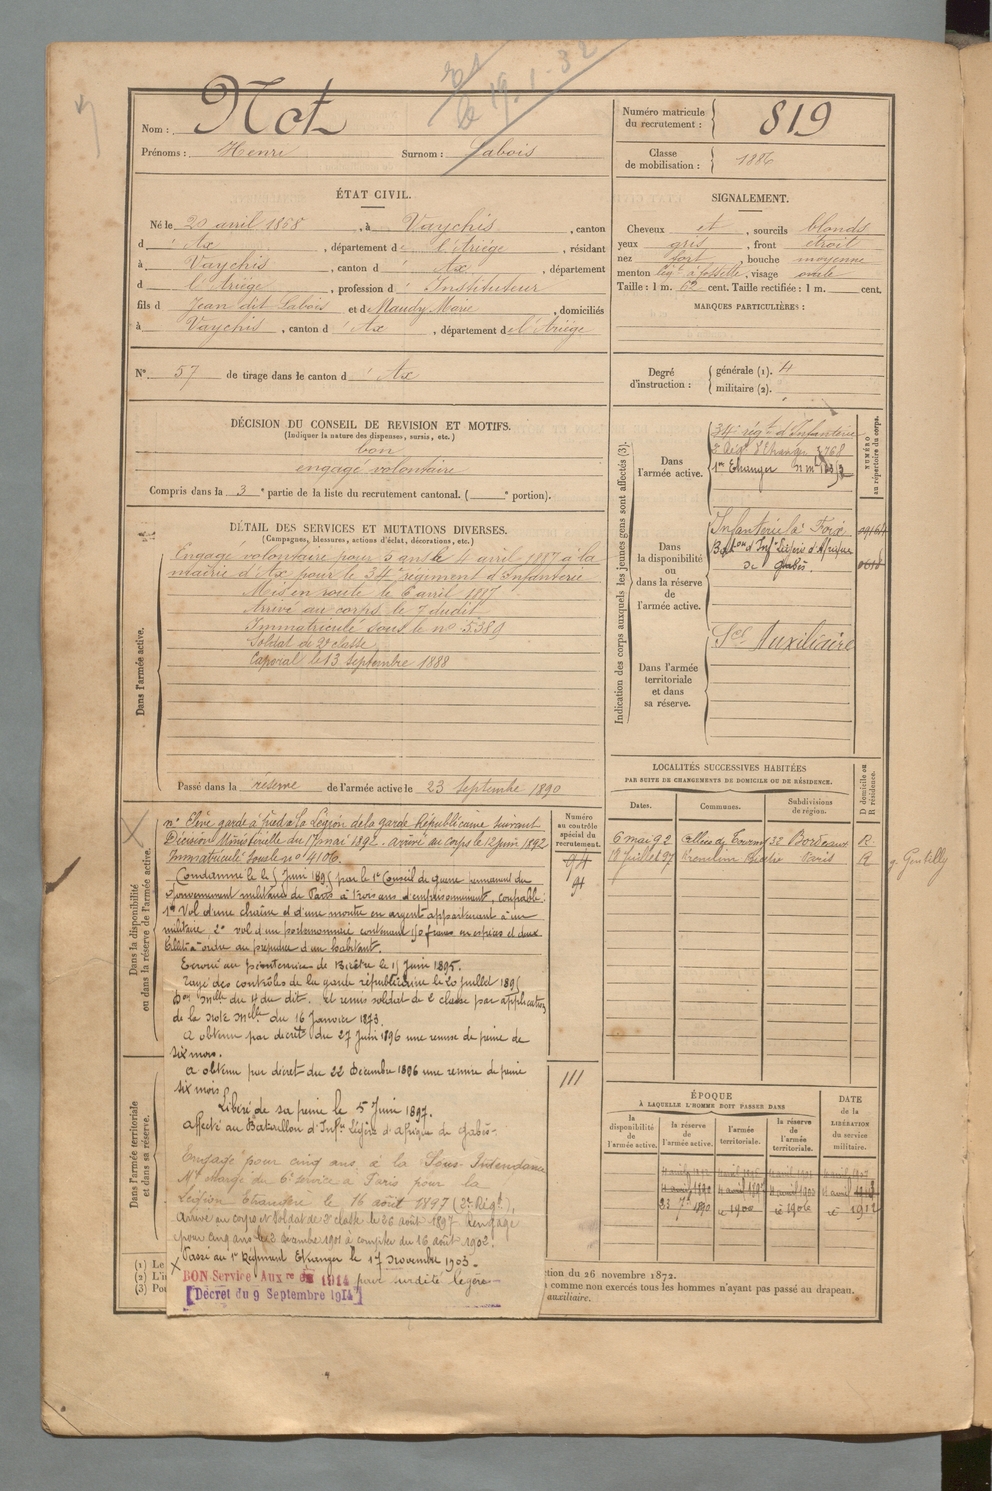 Nom : Not
Prénoms : Henri Surnom : Labois
Numéro matricule du recrutement : 819
Classe de mobilisation : 1886
ÉTAT CIVIL.
Né le 20 avril 1868, à Vaychis, canton
d' Ax, département de l'Ariège, résidant
à Vaychis, canton d' Ax, département
d l'Ariège, profession d' Instituteur
fils d Jean dit Labois et de Naudy Marie, domiciliés
à Vaychis, canton d' Ax, département de l'Ariège
N° 57 de tirage dans le canton d' Ax
SIGNALEMENT.
Cheveux et, sourcils blonds
yeux gris, front étroit
nez fort, bouche moyenne
menton à fossette, visage ovale
Taille : 1 m. 62 cent. Taille rectifiée : 1 m. cent.
MARQUES PARTICULIÈRES :
Degré d'instruction : générale (1). 4
militaire (2).
DÉCISION DU CONSEIL DE REVISION ET MOTIFS.
(Indiquer la nature des dispenses, sursis, etc.)
bon
engagé volontaire
Compris dans la 3e partie de la liste du recrutement cantonal. ( e portion).
DÉTAIL DES SERVICES ET MUTATIONS DIVERSES.
(Campagnes, blessures, actions d'éclat, décorations, etc.)
Dans l'armée active.
Engagé volontaire pour 5 ans le 4 avril 1887 à la
mairie d'Ax pour le 34e régiment d'Infanterie
Mis en route le 6 avril 1887
Arrivé au corps le 7 dudit
Immatriculé sous le n° 5389
Soldat de 2e classe
Caporal le 13 septembre 1888
Passé dans la réserve de l'armée active le 23 septembre 1890
Indication des corps auxquels les jeunes gens sont affectés (3).
NUMÉRO au répertoire du corps.
Dans l'armée active.
34e régt d'Infanterie
2e Régt Etranger 3768
1er Etranger
Dans la disponibilité ou dans la réserve de l'armée active.
Infanterie à Foix
Baton d'Infie Légère d'Afrique
de Gabès
Dans l'armée territoriale et dans sa réserve.
Sce Auxiliaire
LOCALITÉS SUCCESSIVES HABITÉES
PAR SUITE DE CHANGEMENTS DE DOMICILE OU DE RÉSIDENCE.
Dates. Communes. Subdivisions de région. D domicile ou R résidence.
6 mai 92 allées de Tourny 32 Bordeaux R
19 juillet 97 Kremlin Bicêtre Paris R
Gentilly
Dans la disponibilité ou dans la réserve de l'armée active.
Numéro au contrôle spécial du recrutement.
94
94
111
Elève garde à pied à la Légion de la garde Républicaine suivant
Décision Ministérielle du 17 mai 1892. arrivé au corps le 12 juin 1892
Immatriculé sous le n° 4106.
Condamné le 5 Juin 1895 par le 1er Conseil de guerre permanent du
Gouvernement militaire de Paris à trois ans d'emprisonnement, coupable :
1° Vol d'une chaîne et d'une montre en argent appartenant à un
militaire 2° vol d'un portemonnaie contenant 150 francs en espèces et deux
billets à ordre au préjudice d'un habitant.
Ecroué au pénitencier de Bicêtre le 15 Juin 1895.
Rayé des contrôles de la garde républicaine le 20 juillet 1895
don mlle du 1er du dit. et remis soldat de 2e classe par application
de la note mlle du 16 Janvier 1873.
A obtenu par décret du 27 Juin 1896 une remise de peine de
six mois.
A obtenu par décret du 22 Décembre 1896 une remise de peine
six mois.
Libéré de sa peine le 5 Juin 1897.
Affecté au Bataillon d'Infie Légère d'Afrique de Gabès.
Dans l'armée territoriale et dans sa réserve.
Engagé pour cinq ans à la Sous-Intendance
Mre chargé du 6e service à Paris pour la
Légion Etrangère le 16 août 1897 (2e Régt),
Arrivé au corps et Soldat de 2e classe le 26 août 1897 Rengagé
pour cinq ans le 2 décembre 1901 à compter du 16 août 1902.
Passé au 1er Régiment Etranger le 17 novembre 1903.
BON Service Auxre en 1914 pour surdité légère
[Décret du 9 Septembre 1914]
ÉPOQUE
À LAQUELLE L'HOMME DOIT PASSER DANS
la disponibilité de l'armée active. la réserve de l'armée active. l'armée territoriale. la réserve de l'armée territoriale. DATE de la LIBÉRATION du service militaire.
4 avril 1892 4 avril 1897 4 avril 1903
23 7bre 1890 1900 1906 1912
(1) Le
(2) L'i
(3) Po
tion du 26 novembre 1872.
comme non exercés tous les hommes n'ayant pas passé au drapeau,
auxiliaire.